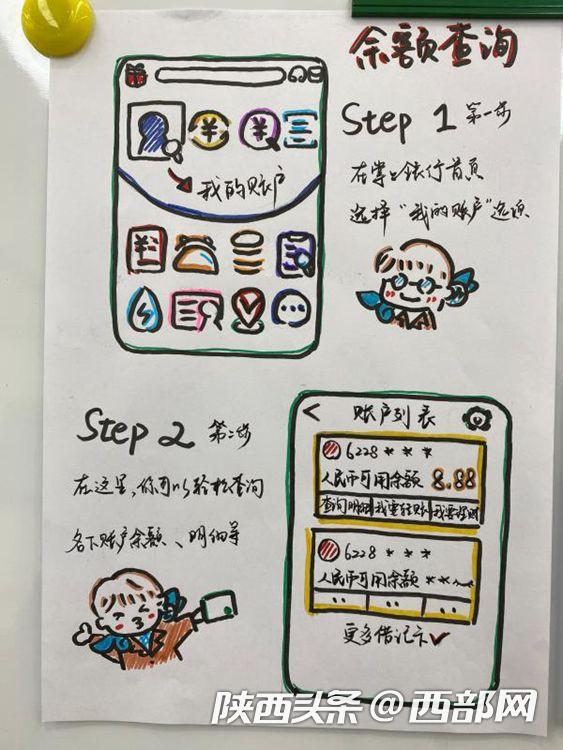 余额查询
Step 1 第一步
在掌上银行首页
选择“我的账户”选项
¥ ¥
我的账户
¥
Step 2 第二步
在这里,你可以轻松查询
名下账户余额、明细等
< 账户列表
6228 * * *
人民币可用余额 8.88
查询明细 我要转账 我要理财
6228 * * *
人民币可用余额 ****
更多借记卡
陕西头条@西部网